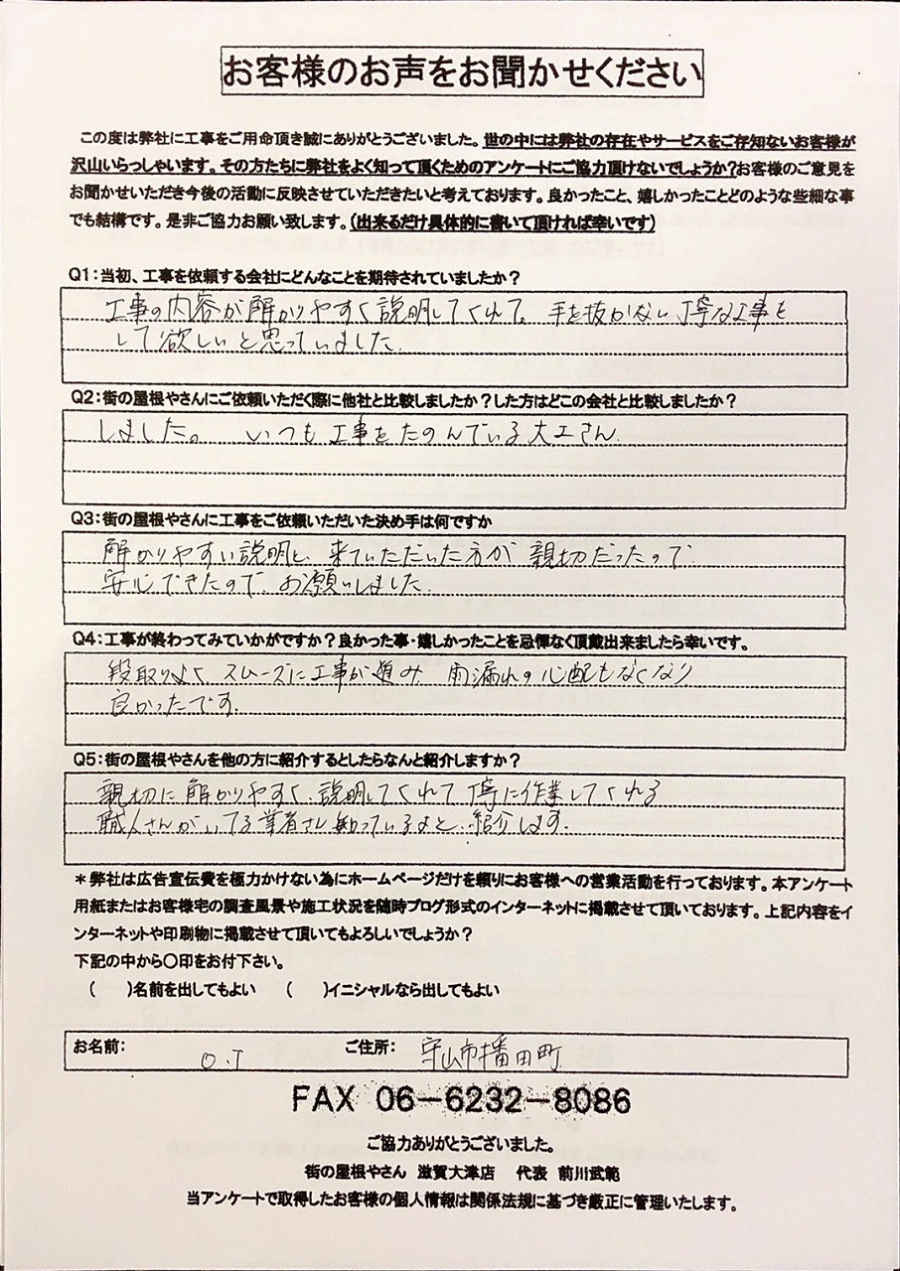 お客様のお声をお聞かせください
この度は弊社に工事をご用命頂き誠にありがとうございました。世の中には弊社の存在やサービスをご存知ないお客様が
沢山いらっしゃいます。その方たちに弊社をよく知って頂くためのアンケートにご協力頂けないでしょうか?お客様のご意見を
お聞かせいただき今後の活動に反映させていただきたいと考えております。良かったこと、嬉しかったことどのような些細な事
でも結構です。是非ご協力お願い致します。(出来るだけ具体的に書いて頂ければ幸いです)
Q1:当初、工事を依頼する会社にどんなことを期待されていましたか?
工事の内容が解かりやすく説明してくれて。手を抜かない丁寧な工事を
して欲しいと思っていました.
Q2:街の屋根やさんにご依頼いただく際に他社と比較しましたか?した方はどこの会社と比較しましたか?
しました。 いつも工事をたのんでいる大工さん.
Q3:街の屋根やさんに工事をご依頼いただいた決め手は何ですか
解かりやすい説明と、来ていただいた方が親切だったので
安心できたので、お願いしました.
Q4:工事が終わってみていかがですか?良かった事・嬉しかったことを忌憚なく頂戴出来ましたら幸いです。
段取りよく スムーズに工事が進み 雨漏れの心配もなくなり
良かったです.
Q5:街の屋根やさんを他の方に紹介するとしたらなんと紹介しますか?
親切に解かりやすく説明してくれて丁寧に作業してくれる
職人さんがいてる業者さん知っているよと、紹介します.
*弊社は広告宣伝費を極力かけない為にホームページだけを頼りにお客様への営業活動を行っております。本アンケート
用紙またはお客様宅の調査風景や施工状況を随時ブログ形式のインターネットに掲載させて頂いております。上記内容をイ
ンターネットや印刷物に掲載させて頂いてもよろしいでしょうか?
下記の中から○印をお付下さい。
( )名前を出してもよい ( )イニシャルなら出してもよい
お名前: O.T ご住所: 守山市播田町
FAX 06-6232-8086
ご協力ありがとうございました。
街の屋根やさん 滋賀大津店 代表 前川武範
当アンケートで取得したお客様の個人情報は関係法規に基づき厳正に管理いたします。